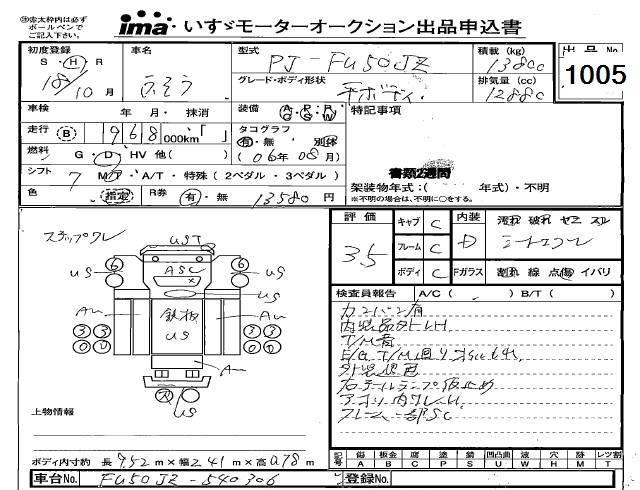 ※赤太枠内は必ず
ボールペンで
ご記入下さい。
ima いすゞモーターオークション出品申込書
初度登録 車名 型式 PJ-FU50JZ 積載 (kg) 13800 出品No
S・H・R 18/10月 ふそう グレード・ボディ形状 平ボディ 排気量 (cc) 12880 1005
車検 年 月・ 抹消 装備 A/C P/S R/G P/W 特記事項
走行 B 968 000km「 」 タコグラフ 有・無 別体
燃料 G・D・HV 他( ) (06年08月)
シフト 7 M/T・A/T・特殊(2ペダル・3ペダル) 書類2週間
架装物年式:( 年式)・不明
色 指定 R券 有・無 13580円 ※不明の場合は、不明に○をする。
ステップワレ
UST
6 ASC 6
US US
US
Aм 鉄板 Aм
US
3 3 3 3
0 0 0 0
Aм
US
上物情報
ボディ内寸約 長 9.52 m×幅 2.41 m×高 0.78 m
車台No. FU50JZ-540306
評価 3.5
キャブ C 内装 D 汚れ 破れ ヤニ スレ
フレーム C シートコワレ
ボディ C Fガラス 割れ 線 点傷 イバリ
検査員報告 A/C ( ) B/T ( )
カンバン有
T/M音
外装色
右テールランプ仮止め
フレーム一部SC
記号 傷 板金 腐 塗 錆 凹凸曲 液 穴 跡 水 レツ割
A B C P S U W H M T
登録No.